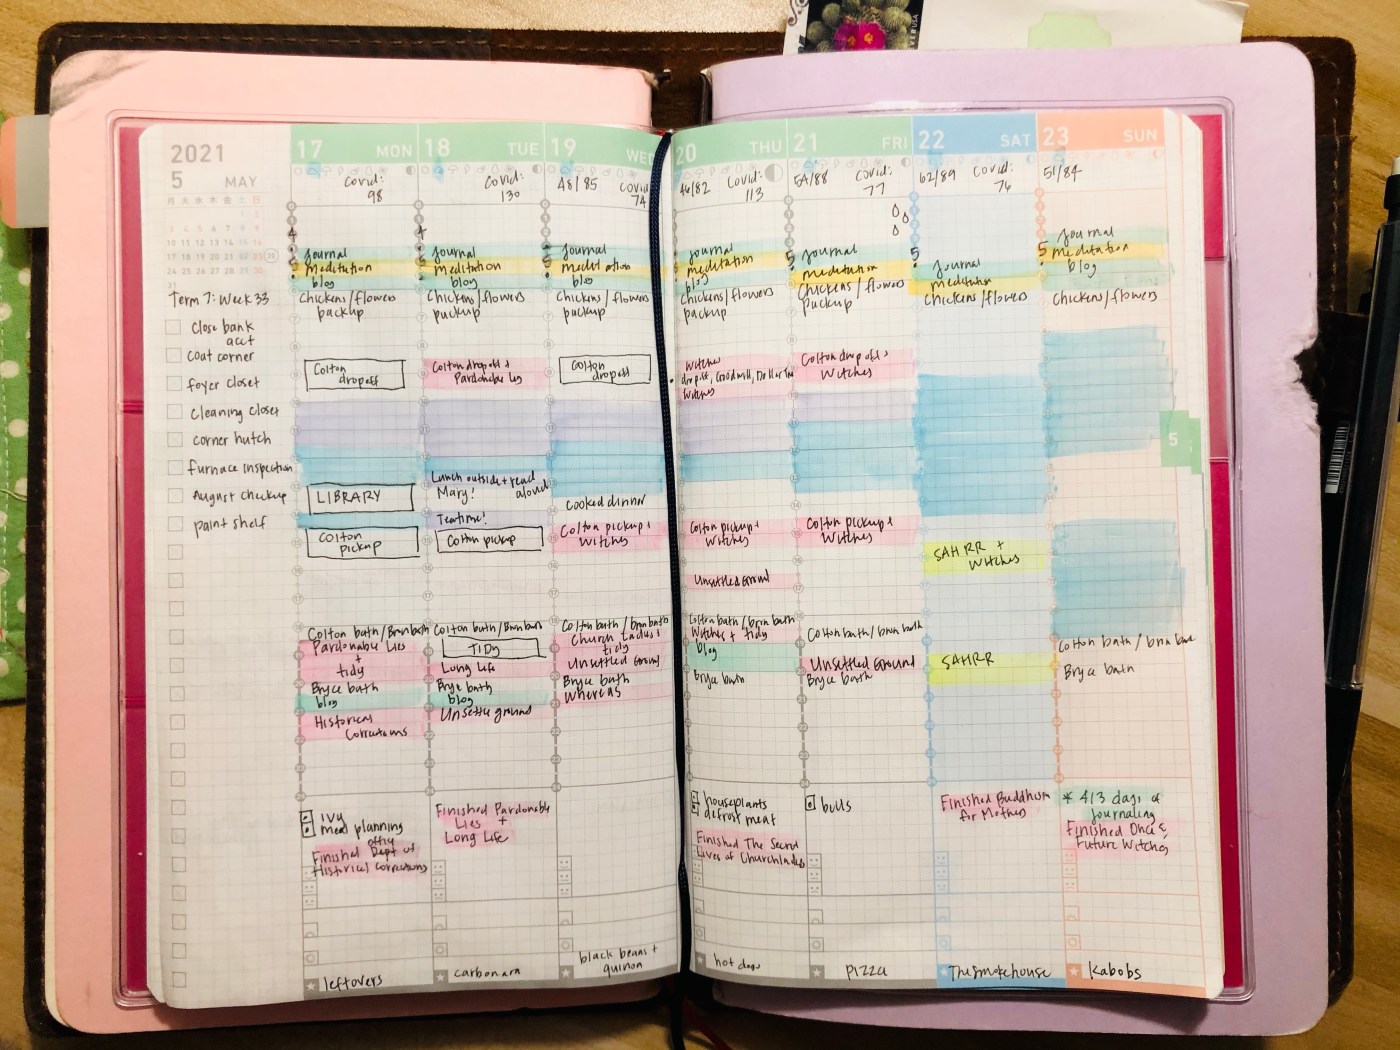 2021
5 MAY
Term 7: Week 33
Close bank
acct
coat corner
foyer closet
cleaning closet
corner hutch
furnace inspection
August checkup
paint shelf
17 MON
Covid:
98
Journal
meditation
blog
Chickens/flowers
backup
Colton
dropoff
LIBRARY
Colton
pickup
Colton bath/
Pardonable Lies
+
tidy
Bryce bath
blog
Historical
Corrections
IVY
meal planning
Finished Office
Dept of
Historical Corrections
leftovers
18 TUE
Covid:
130
Journal
meditation
blog
Chickens/flowers
Colton dropoff +
Pardonable
Lunch outside + read
Mary! aloud
Teatime!
Colton pickup
Colton bath/
TIDY
Long Life
Bryce bath
blog
Unsettled ground
Finished Pardonable
Lies +
Long Life
carbonara
19 WED
48/85 Covid
74
Journal
meditation
blog
Chickens/flowers
Colton
dropoff
cooked dinner
Colton pickup +
Witches
Colton bath/
Church Ladies +
tidy
Unsettled Ground
Bryce bath
Whereas
black beans +
quinoa
20 THU
46/82 Covid:
113
Journal
meditation
blog
Chickens/flowers
backup
Witches
dropoff, Goodwill, Dollar Tree
Witches
Colton pickup +
Witches
Unsettled Ground
Colton bath/
Witches + tidy
blog
Bryce bath
houseplants
defrost meat
Finished The Secret
Lives of Church Ladies
hot dogs
21 FRI
54/88 Covid:
77
Journal
meditation
Chickens/flowers
Colton dropoff +
Witches
Colton pickup +
Witches
Colton bath/
Unsettled Ground
Bryce bath
bills
PIZZA
22 SAT
62/89 Covid:
76
Journal
meditation
Chickens/flowers
SAHRR +
Witches
SAHRR
Finished Buddhism
for Mothers
The Smokehouse
23 SUN
51/84
Journal
meditation
blog
Chickens/flowers
5
Colton bath/
Bryce bath
* 413 days of
journaling
Finished Once &
Future Witches
Kabobs